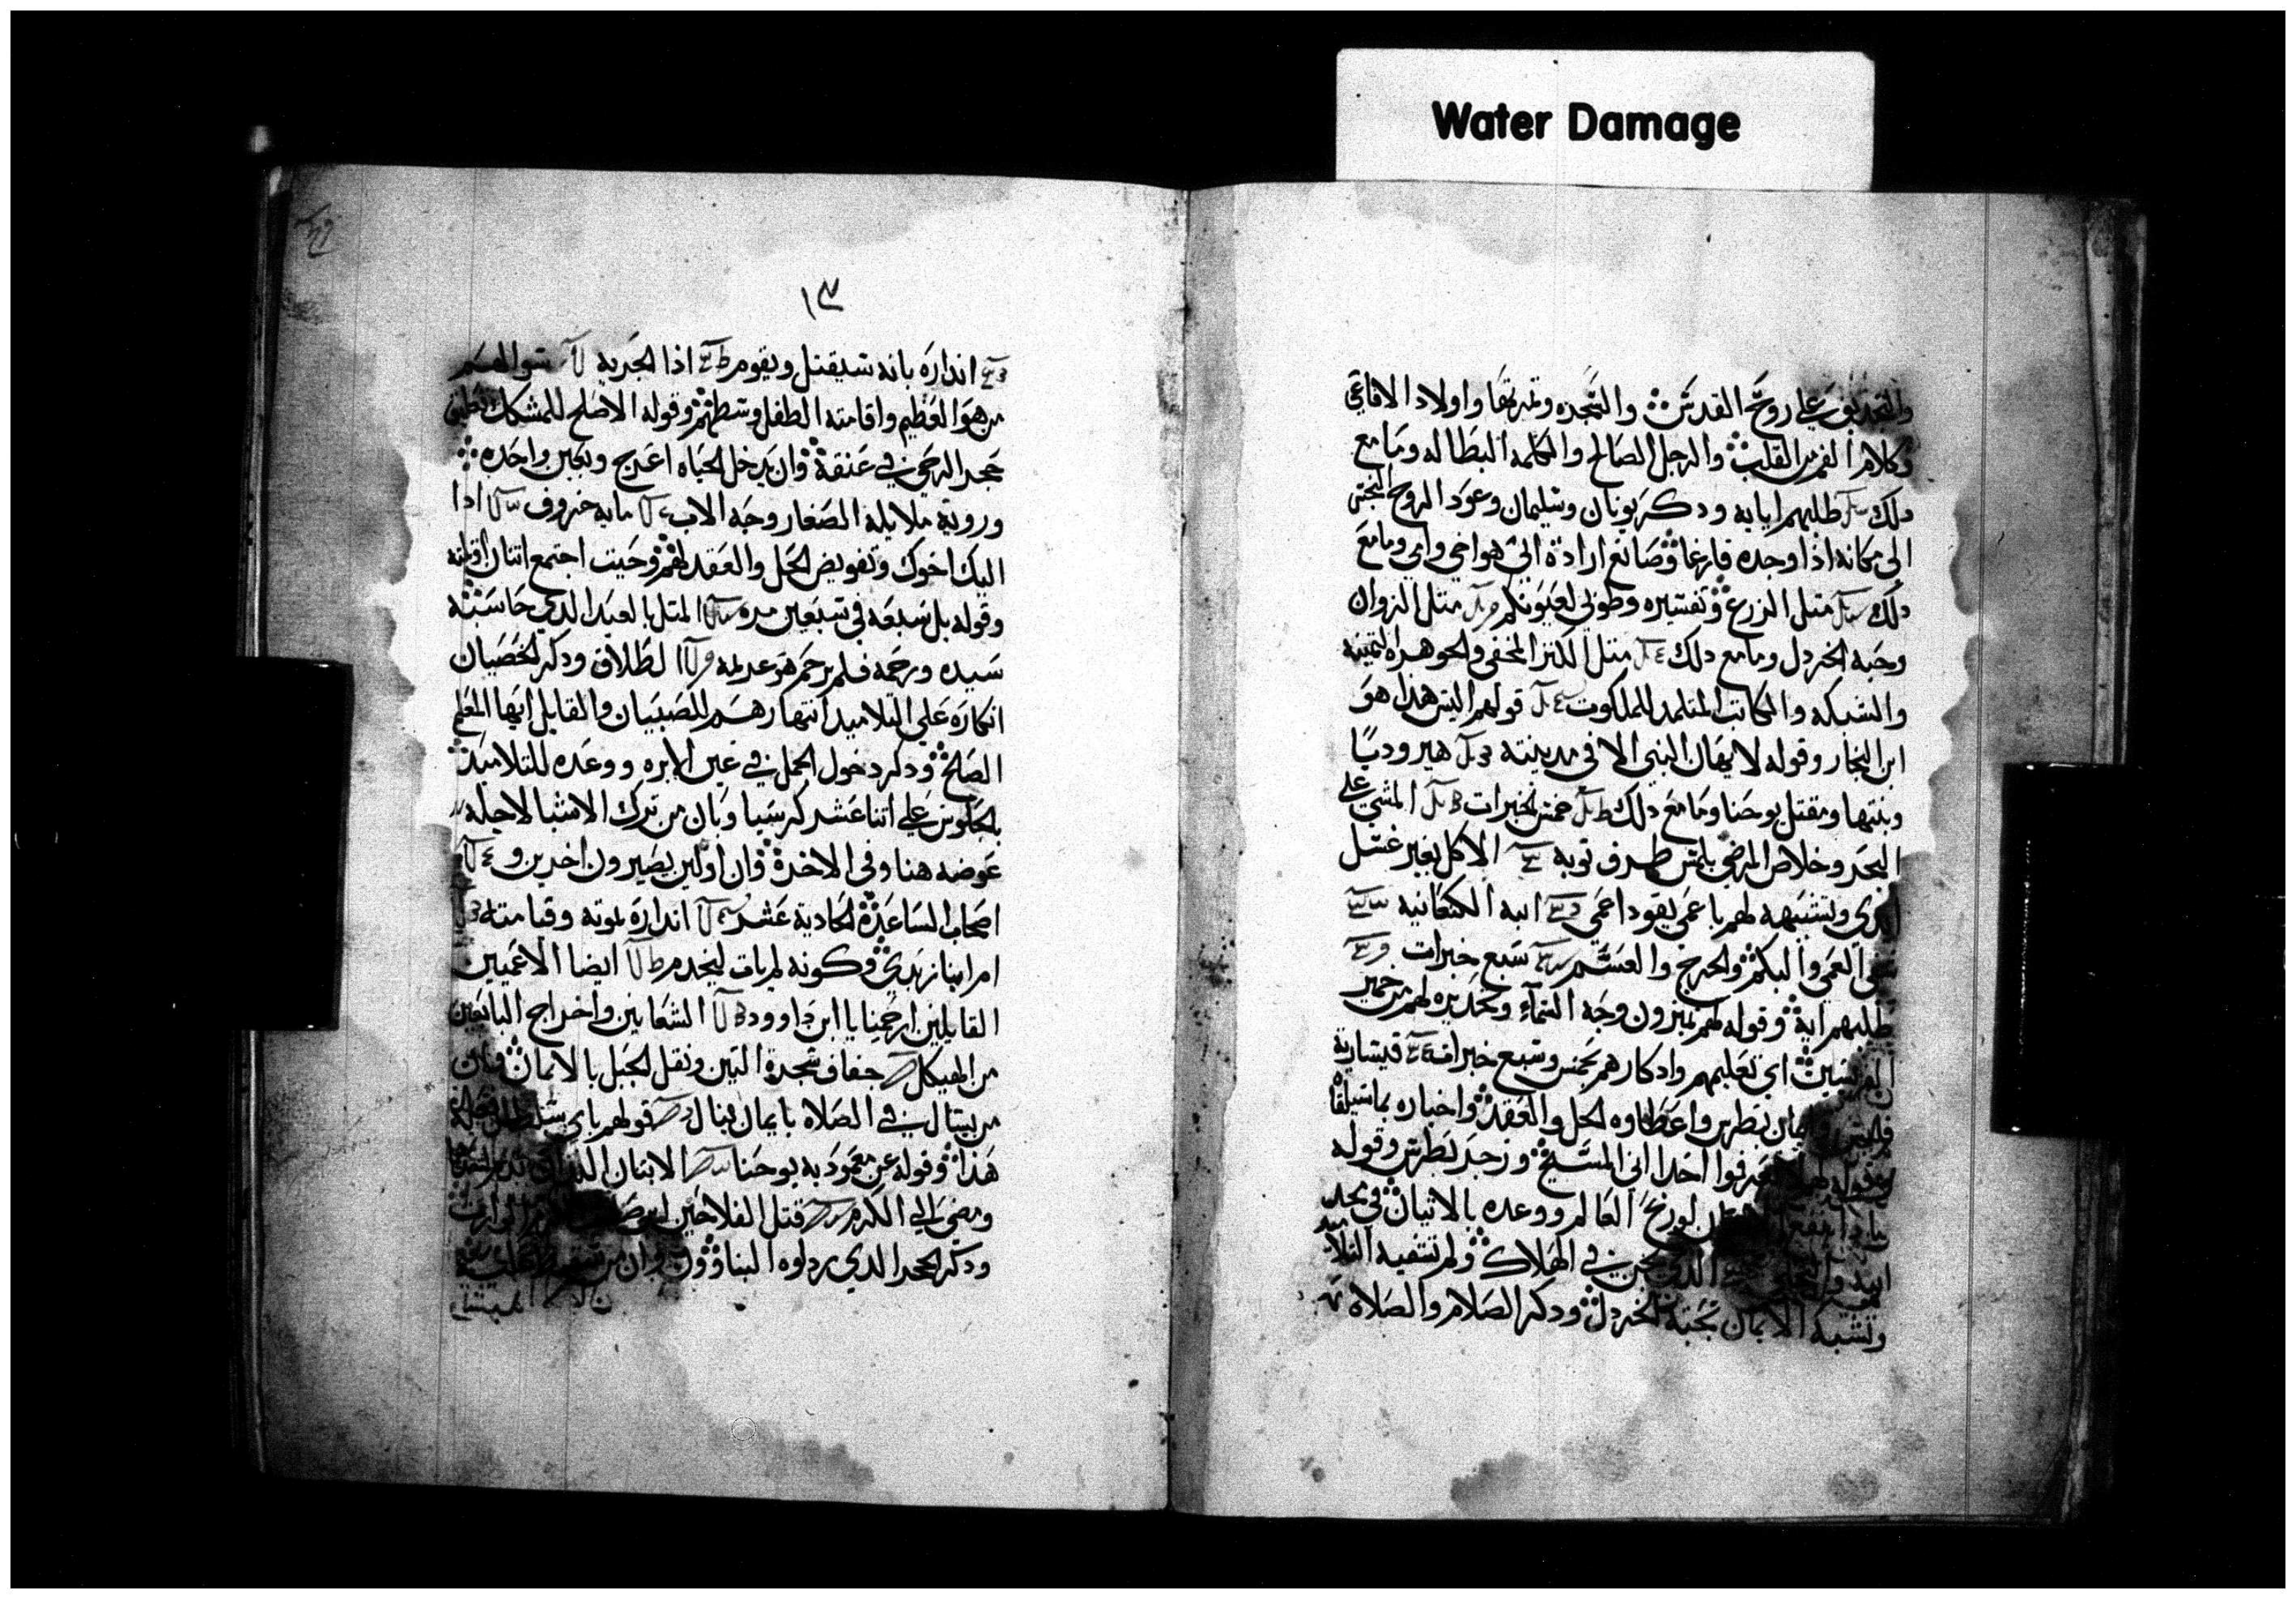 Water Damage
على روح القدس والشجره وثمرتها واولاد الافاعي
وكلام الفم من القلب والرجل الصالح والكلمه البطاله وما مع
دلك طلبهم ايايه ودكر يونان وسليمان وعود الروح النجس
الى مكانه اذا وجده فارغا وصانع ارادة ابي هو اخي وامي وما مع
دلك متل الزرع وتفسيره وطوبى لعيونكم متل الزوان
وحبه الخردل وما مع دلك متل الكنز المخفى والجوهره التمينه
والشبكه والكاتب المتلمد للملكوت قولهم اليس هدا هو
ابن النجار وقوله لا يهان النبى الا فى مدينته هيروديا
وبنتها ومقتل يوحنا وما مع دلك خمس خبزات المشي على
البحر وخلاص المرضى بلمس طرف توبه الاكل بغير غسل
وتشبيهه لهم باعمى يقود اعمى ابنه الكنعانيه
العمى والبكم والعرج والعسم سبع خبزات
طلبهم اية وقوله لهم تميزون وجه السماء وتحديره لهم من خمير
اى تعليمهم وادكارهم بخمس وسبع خبزات قيسارية
بطرس واعطاوه الحل والعقد واخباره بما سيلقا
احدا انى المسيح وزجر بطرس وقوله
لو ربح العالم ووعده بالاتيان في مجد
ابيه فى الهلاك ولم تشفيه التلاميد
وتشبه الايمان بحبة الخردل ودكر الصلام والصلاه
١٣
انداره بانه سيقتل ويقوم اذا الجزيه سوالهم
من هو العظيم واقامته الطفل وسطهم وقوله الاصلح للمشكك
حجر الرحى في عنقه وان يدخل الحياه اعرج وبعين واحده
وروية ملايكة الصغار وجه الاب مايه خروف ادا
اليك اخوك وتفويض الحل والعقد لهم وحيت اجتمع اتنان
وقوله بل سبعه فى سبعين مره المتل بالعبد الدي حاسبه
سيده ورحمه فلم يرحم هو عديله الطلاق ودكر الخصيان
انكاره على التلاميد انتهارهم للصبيان والقايل ايها المعلم
الصالح ودكر دخول الجمل في عين الابره ووعده للتلاميد
بالجلوس على اتنا عشر كرسيا وبان من ترك الاشيا لاجله
عوضه هنا وفى الاخره وان اولين يصيرون اخرين و
اصحاب الساعة الحادية عشر انداره بموته وقيامته
ام ابنا زبدى وكونه لم يات ليخدم ايضا الاعميين
القايلين ارحمنا يا ابن داوود الشعانين واخراج البايعين
من الهيكل جفاف شجرة التين ونقل الجبل بالايمان
من يسال في الصلاه بايمان ينال قولهم باي سلطان
هذا وقوله عن معمودية يوحنا الابنان
ومضى الى الكرم قتل الفلاحين
ودكر الحجر الدي ردلوه البناوون وان من